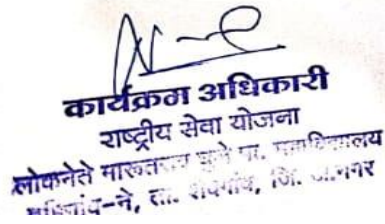 कार्यक्रम अधिकारी
राष्ट्रीय सेवा योजना
लोकनेते मारूतराव घुले पा. महाविद्यालय
ता. शेवगांव, जि.